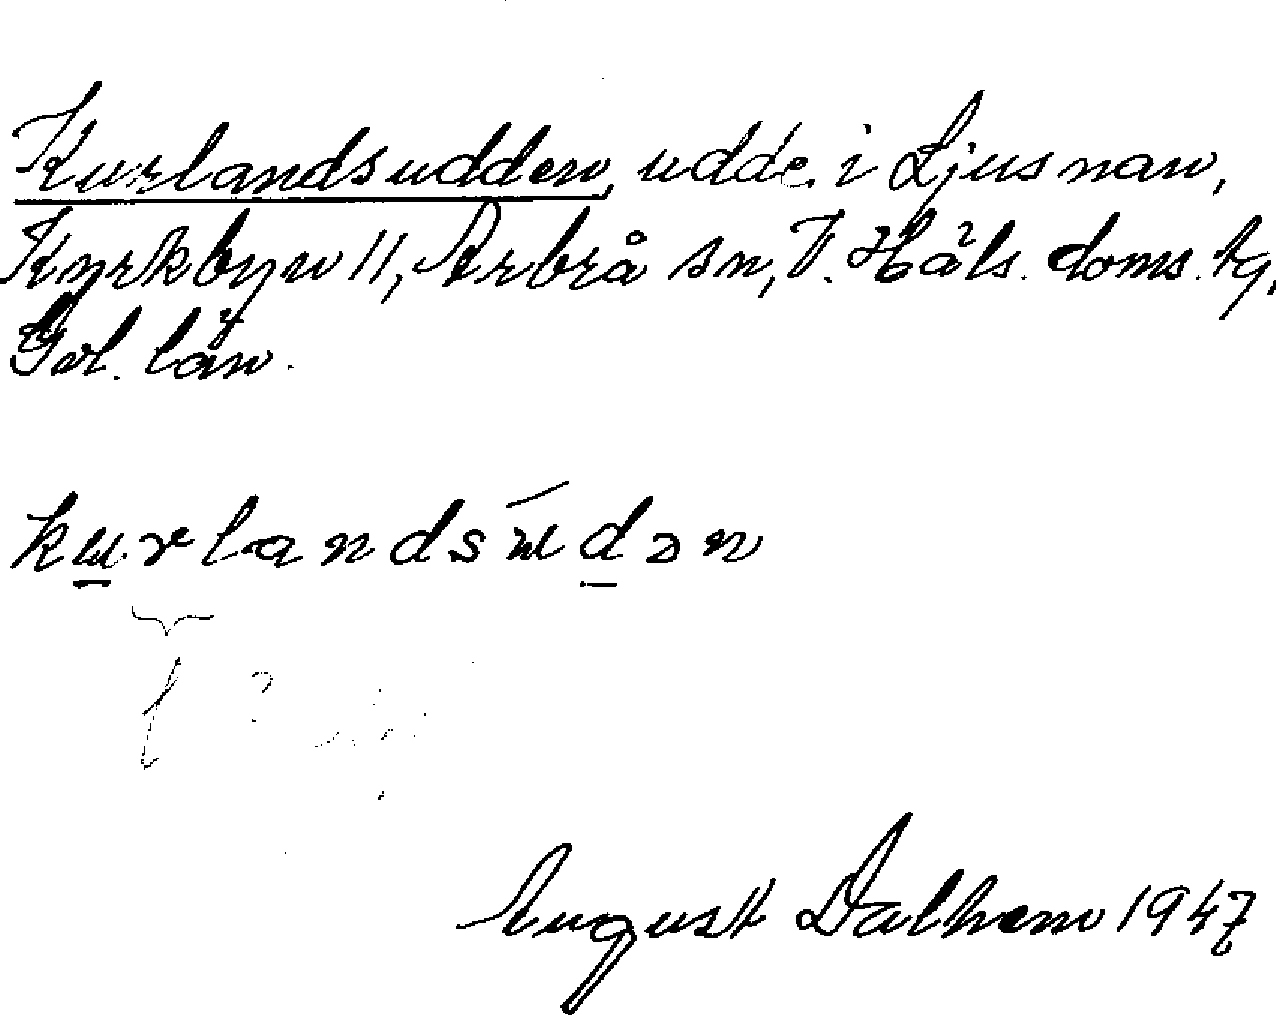 Kurlandsudden, udde i Ljusnan,
Kyrkbyn 11, Arbrå sn, V. Häls. doms. tg,
Gvl. län.
kurlandsúdən
August Dalhem 1947